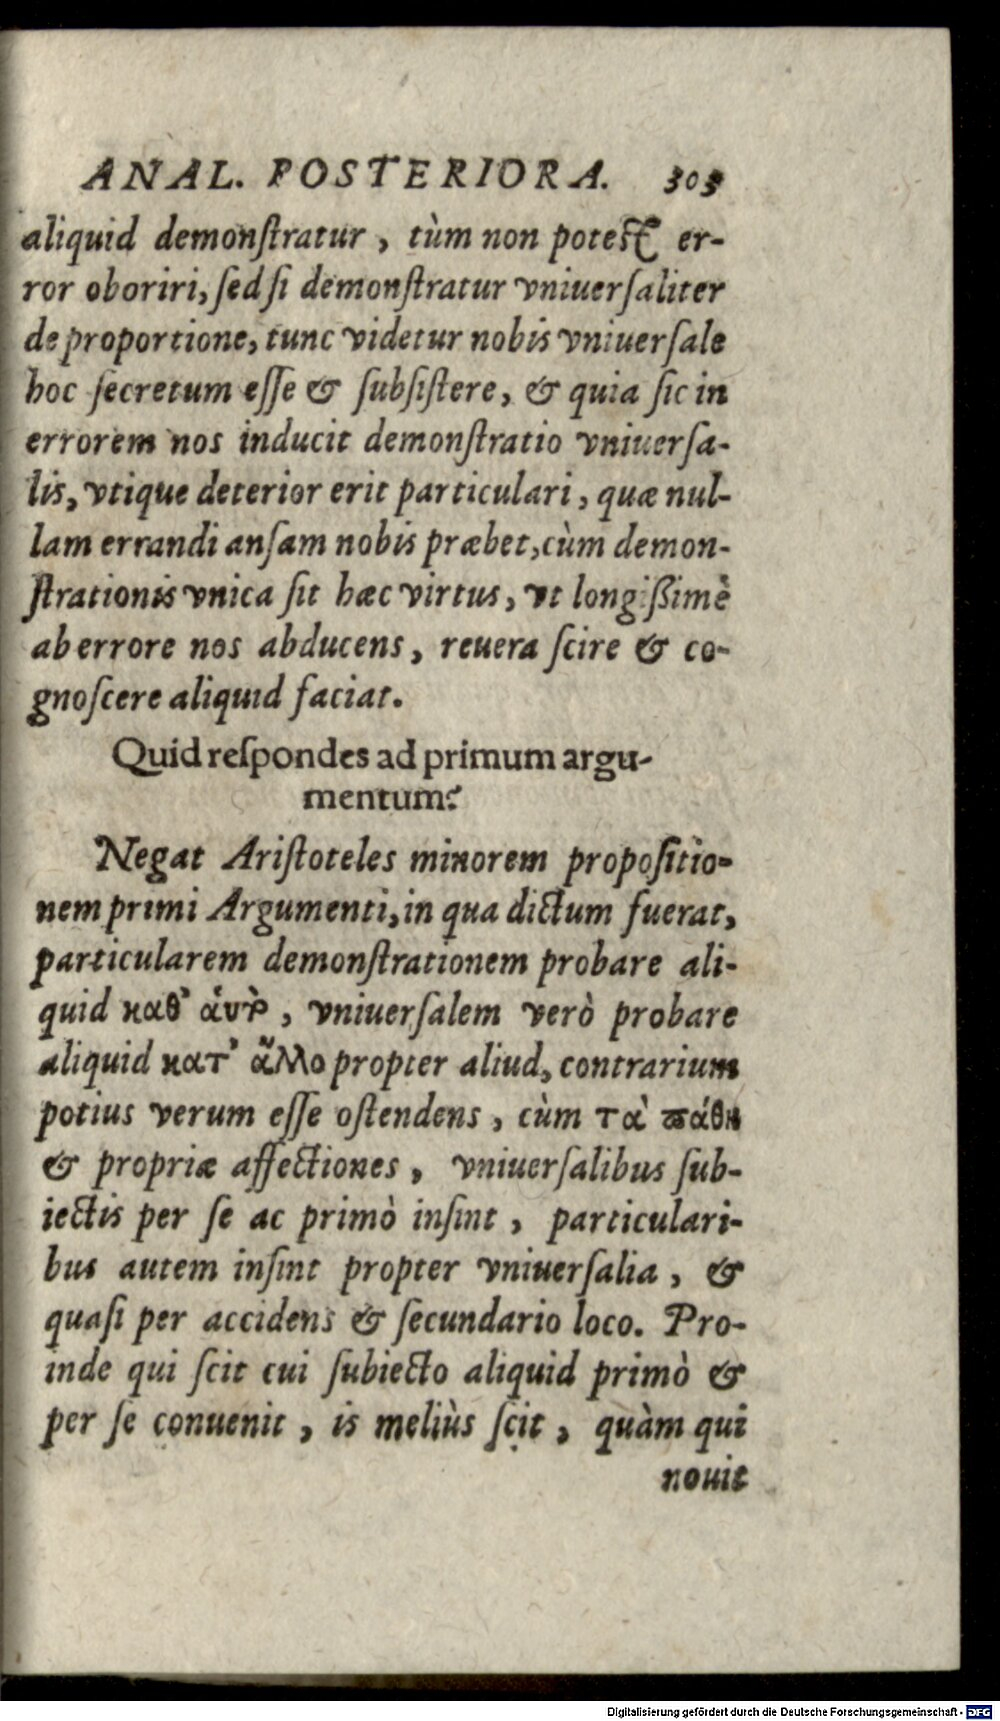 ANAL. POSTERIORA. 303
aliquid demonſtratur, tùm non poteſt er-
ror oboriri, ſed ſi demonſtratur vniuerſaliter
de proportione, tunc videtur nobis vniuerſale
hoc ſecretum eſſe & ſubſiſtere, & quia ſic in
errorem nos inducit demonſtratio vniuerſa-
lis, vtique deterior erit particulari, quæ nul-
lam errandi anſam nobis præbet, cùm demon-
ſtrationis vnica ſit hæc virtus, vt longiſſimè
ab errore nos abducens, reuera ſcire & co-
gnoſcere aliquid faciat.
Quid reſpondes ad primum argu-
mentum?
Negat Ariſtoteles minorem propoſitio-
nem primi Argumenti, in qua dictum fuerat,
particularem demonſtrationem probare ali-
quid καθ' ἁυτὸ, vniuerſalem verò probare
aliquid κατ' ἄλλο propter aliud, contrarium
potius verum eſſe oſtendens, cùm τὰ πάθη
& propriæ affectiones, vniuerſalibus ſub-
iectis per ſe ac primò inſint, particulari-
bus autem inſint propter vniuerſalia, &
quaſi per accidens & ſecundario loco. Pro-
inde qui ſcit cui ſubiecto aliquid primò &
per ſe conuenit, is meliùs ſcit, quàm qui
nouit
Digitalisierung gefördert durch die Deutsche Forschungsgemeinschaft - DFG